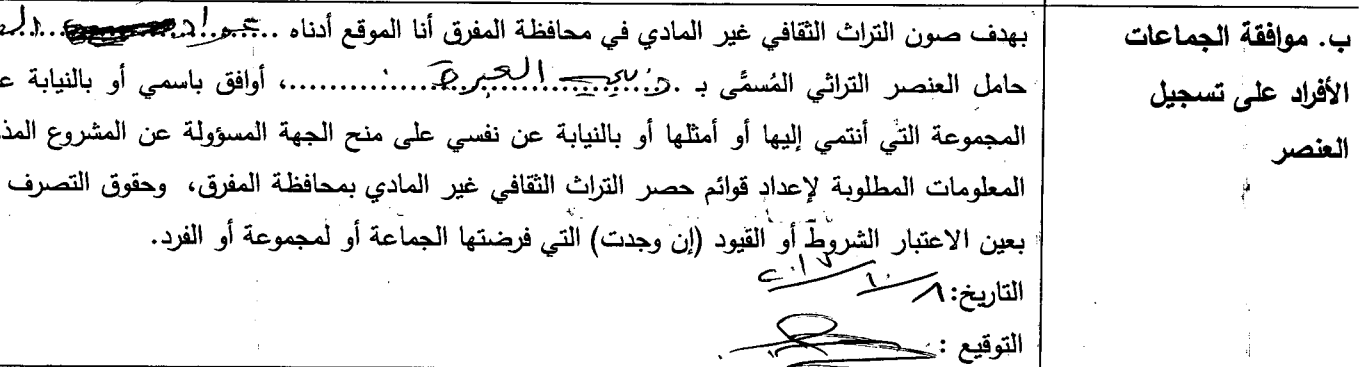 ب. موافقة الجماعات
الأفراد على تسجيل
العنصر
بهدف صون التراث الثقافي غير المادي في محافظة المفرق أنا الموقع أدناه
حامل العنصر التراثي المُسمَّى بـ ................، أوافق باسمي أو بالنيابة
المجموعة التي أنتمي إليها أو أمثلها أو بالنيابة عن نفسي على منح الجهة المسؤولة عن المشروع
المعلومات المطلوبة لإعداد قوائم حصر التراث الثقافي غير المادي بمحافظة المفرق، وحقوق التصرف
بعين الاعتبار الشروط أو القيود (إن وجدت) التي فرضتها الجماعة أو لمجموعة أو الفرد.
التاريخ: ٨/١٠/٢٠١٧
التوقيع :